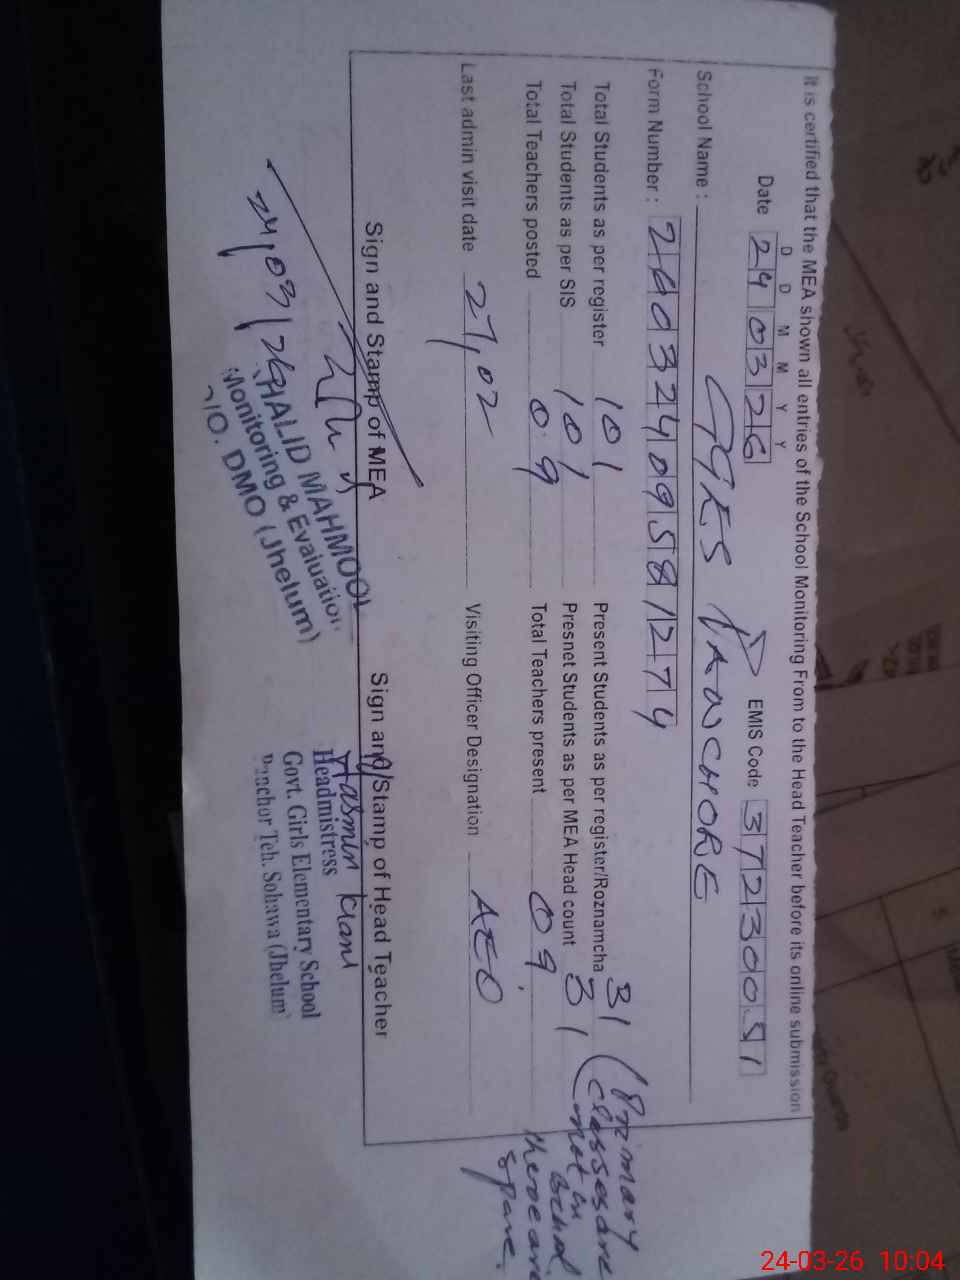 It is certified that the MEA shown all entries of the School Monitoring From to the Head Teacher before its online submission
D D M M Y Y
Date 240326 EMIS Code 37230051
School Name : GGES PANCHORE
Form Number : 26032409581274
Total Students as per register 101 Present Students as per register/Roznamcha 31
Total Students as per SIS 101 Presnet Students as per MEA Head count 31
Total Teachers posted 09 Total Teachers present 09
(Primary
classes are
not in
there are
spare.
Last admin visit date 27,02 Visiting Officer Designation AEO
Sign and Stamp of MEA Sign and/Stamp of Head Teacher
24/03/26
KHALID MAHMOOD
Monitoring & Evaluation
O/O. DMO (Jhelum)
Headmistress
Govt. Girls Elementary School
Panchor Teh. Sohawa (Jhelum)
24-03-26 10:04